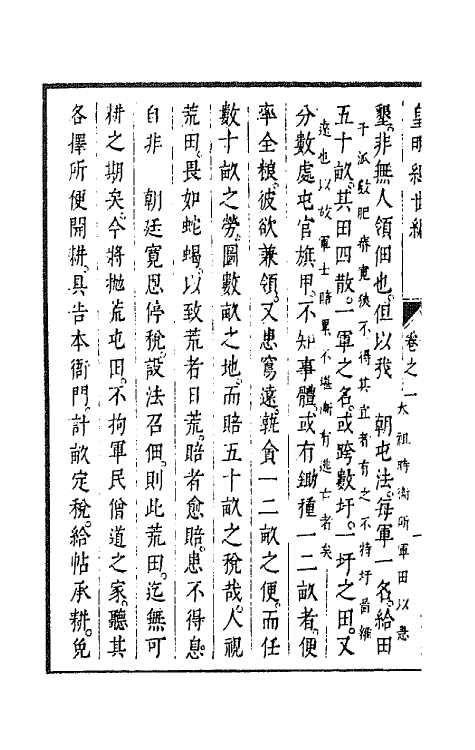 皇明經世編
卷之一
墾非無人領佃也但以我　朝屯法每軍一名給田
太祖時衛所軍田以意
于泒數肥瘠寬狹不得其宜者有之不特圩啚維
五十畝其田四散一軍之名或跨數圩一圩之田又
遠也以故軍士賠累不堪漸有逃亡者矣
分數處屯官旗甲不知事體或有鋤種一二畝者便
率全粮彼欲兼領又患寫遠就貪一二畝之便而任
數十畝之勞圖數畝之地而賠五十畝之稅哉人視
荒田畏如蛇蝎以致荒者日荒賠者愈賠患不得息
自非　朝廷寬恩停稅設法召佃則此荒田迄無可
耕之期矣今將抛荒屯田不拘軍民僧道之家聽其
各擇所便開耕具告本衛門計畝定稅給帖承耕免